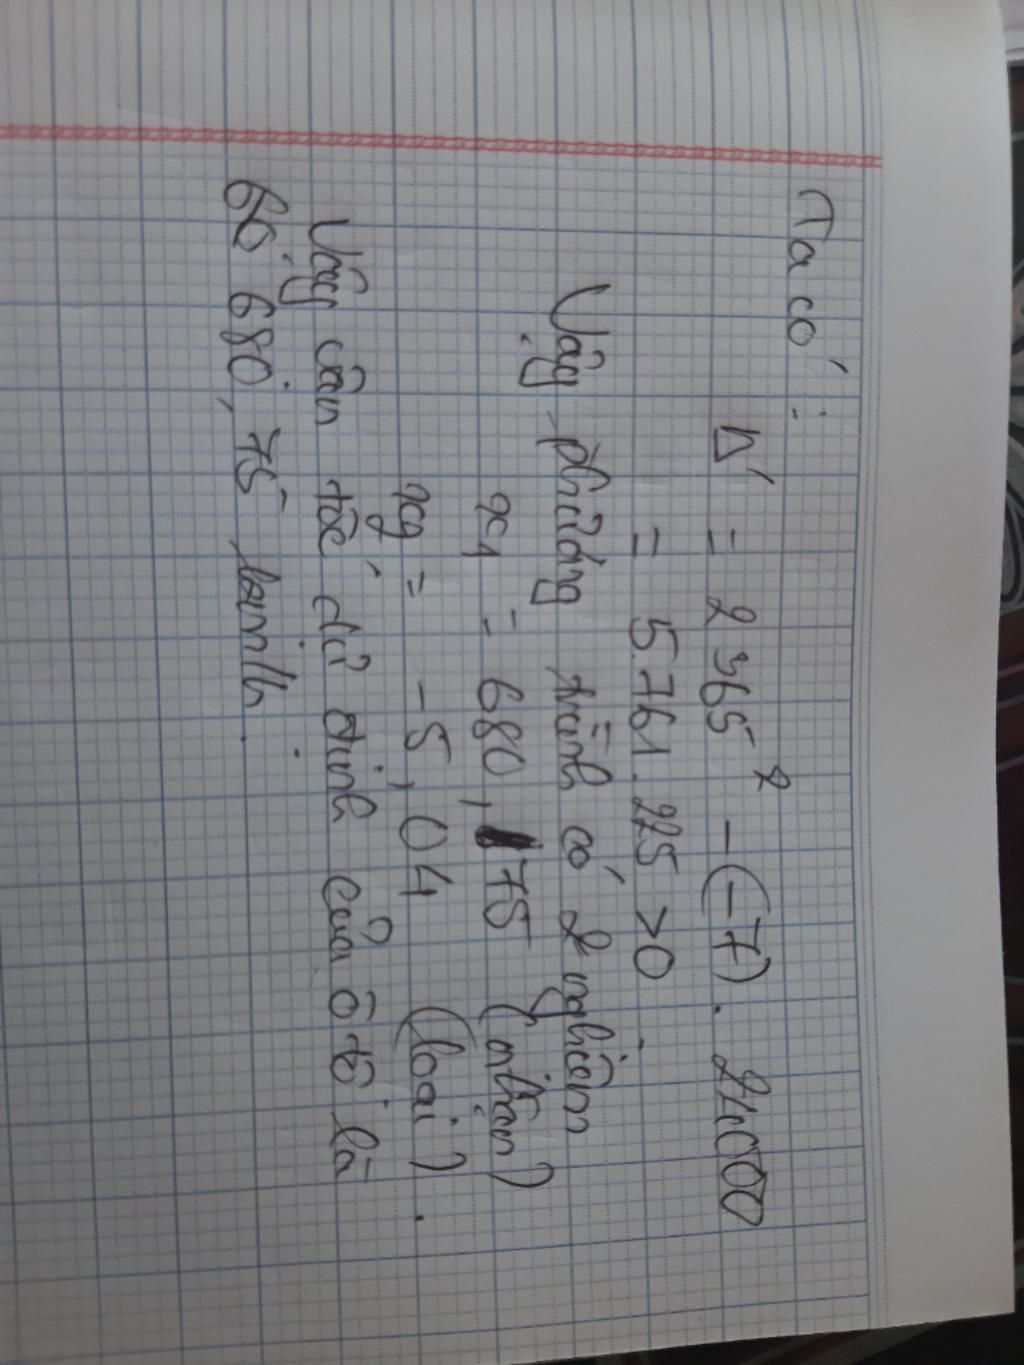 Ta có :
Δ' = 2365² - (-7) . 24000
= 5.761.225 > 0
Vậy phương trình có 2 nghiệm
x₁ = 680, 75 (nhận)
x₂ = -5,04 (loại) .
Vậy vận tốc dự định của ô tô là
680, 75 km/h .